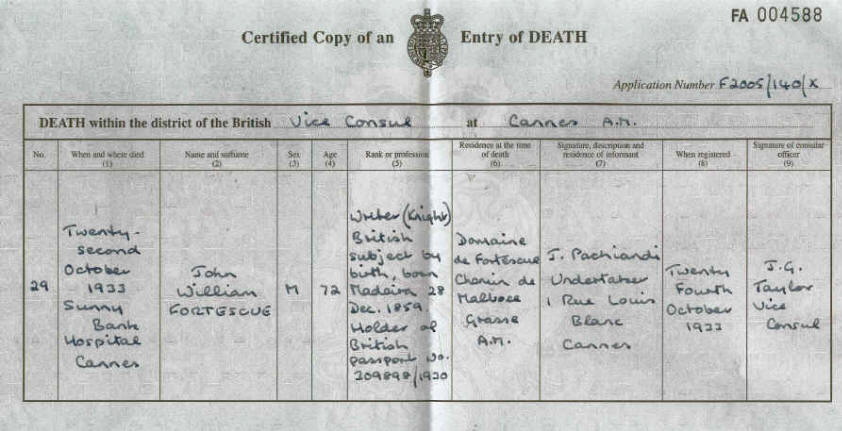 FA 004588
Certified Copy of an Entry of DEATH
Application Number F2005/140/X
DEATH within the district of the British Vice Consul at Cannes A.M.
No.
When and where died
(1)
Name and surname
(2)
Sex
(3)
Age
(4)
Rank or profession
(5)
Residence at the time
of death
(6)
Signature, description and
residence of informant
(7)
When registered
(8)
Signature of consular
officer
(9)
29
Twenty-
second
October
1933
Sunny
Bank
Hospital
Cannes
John
William
FORTESCUE
M
72
Writer (Knight)
British
subject by
birth, born
Madeira 28
Dec. 1859.
Holder of
British
passport No.
209898/1930
Domaine
de Fortescue
Chemin de
Grasse
A.M.
J. Pachiandi
Undertaker
1 Rue Louis
Blanc
Cannes
Twenty
Fourth
October
1933
J.G.
Taylor
Vice
Consul